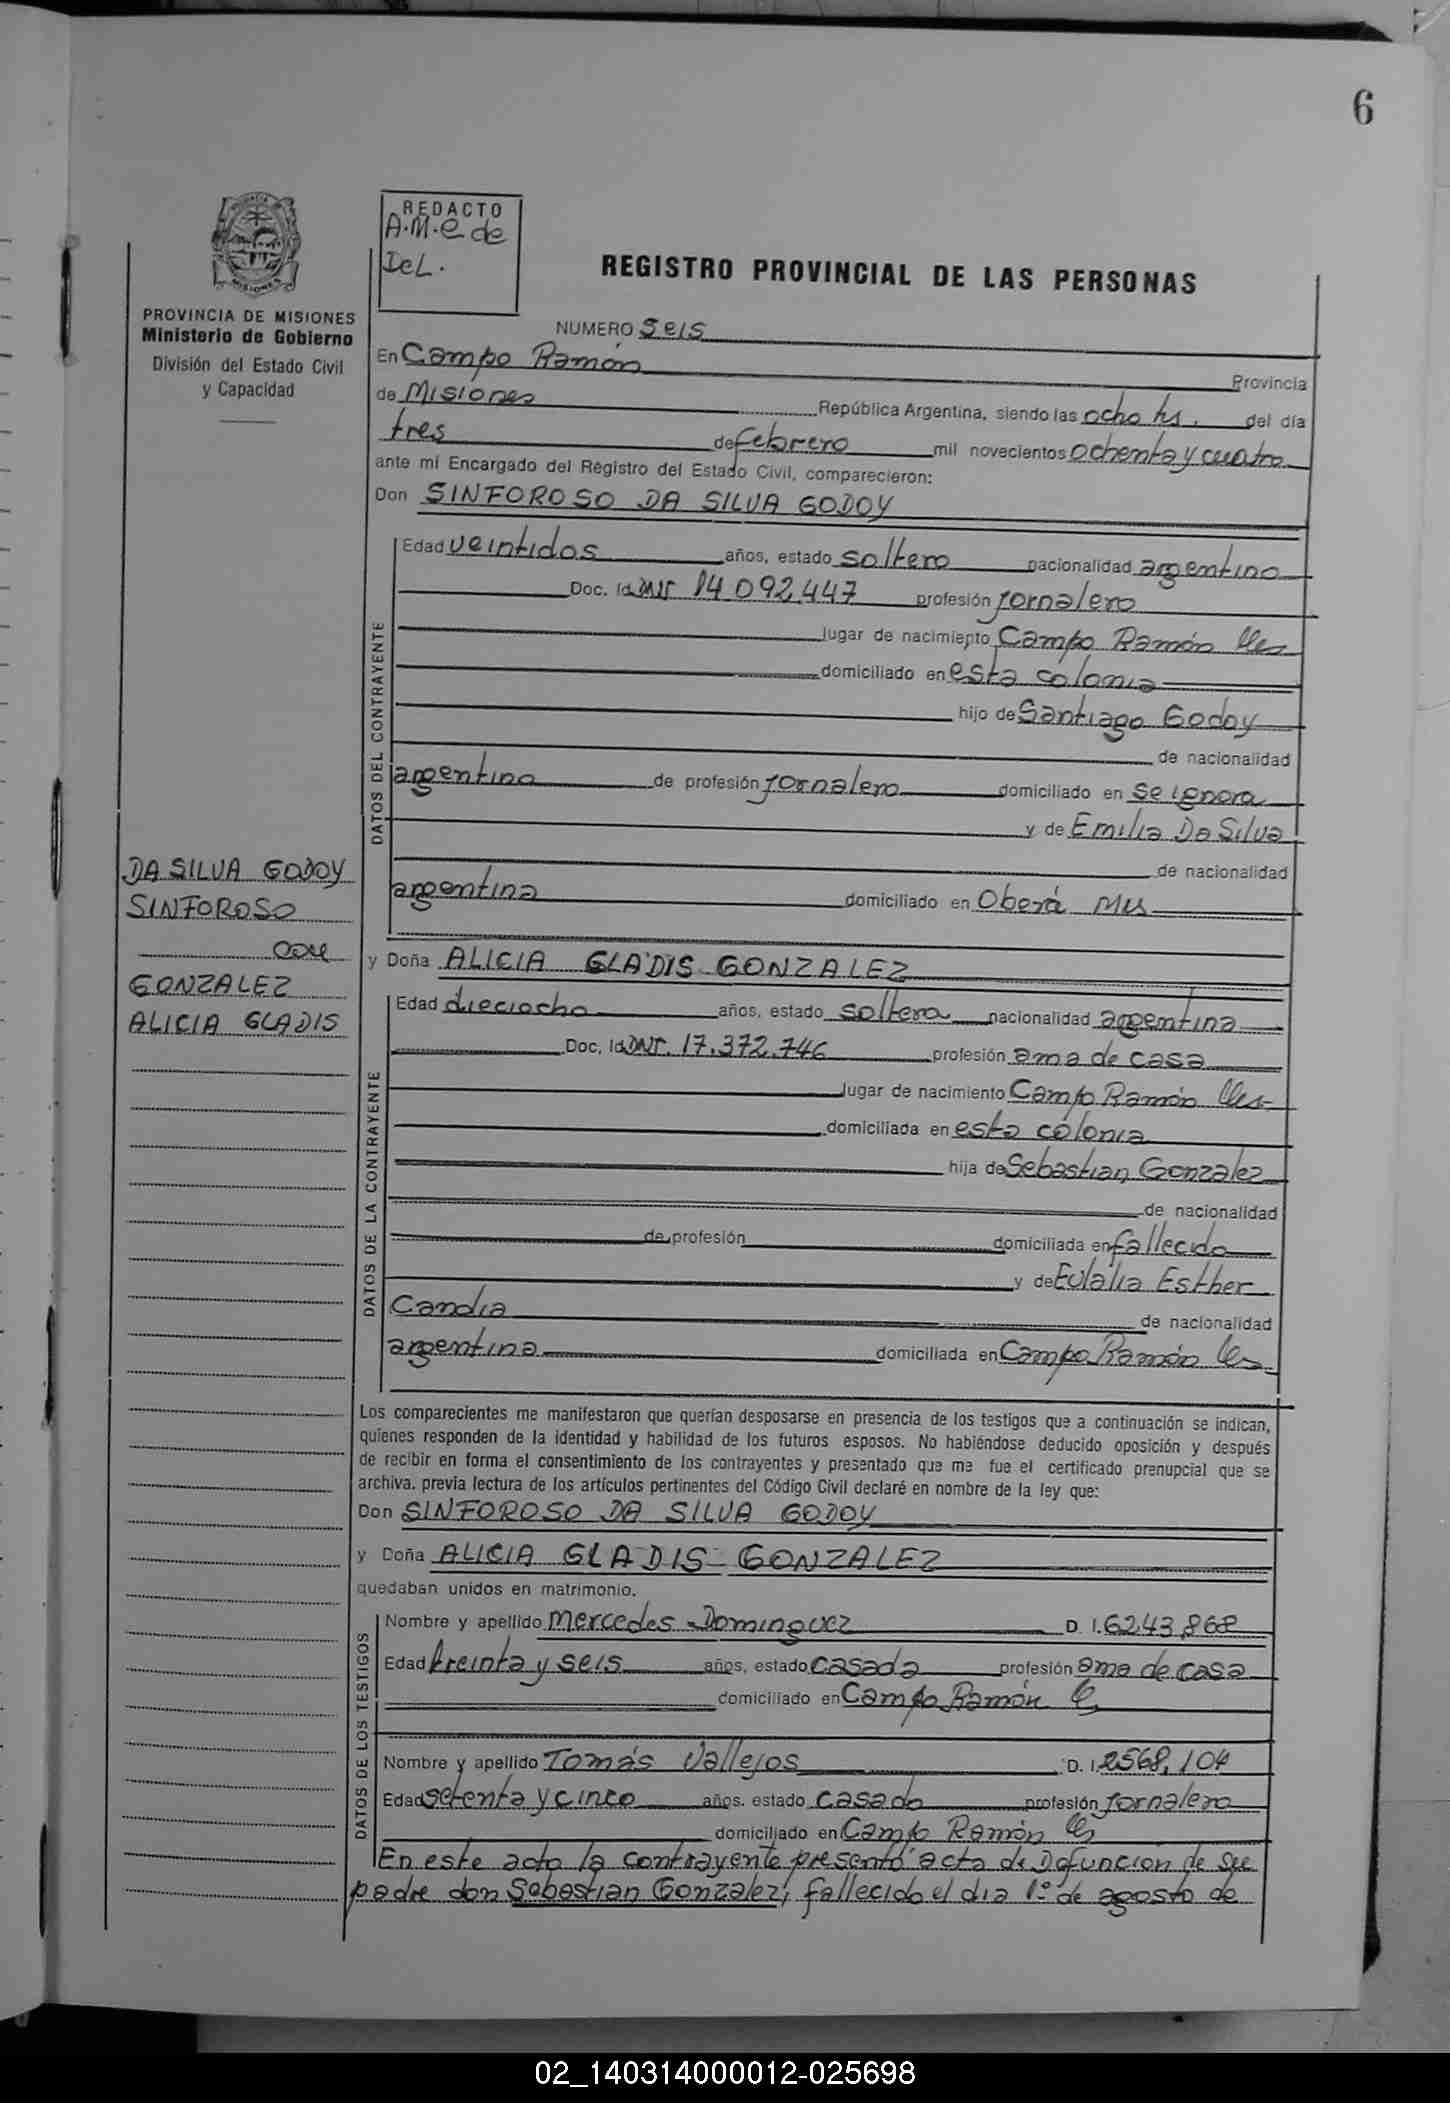 6
REDACTO
A.M.C de
DeL.
REGISTRO PROVINCIAL DE LAS PERSONAS
PROVINCIA DE MISIONES
Ministerio de Gobierno
División del Estado Civil
y Capacidad
MISIONES
NUMERO Seis
En Campo Ramón Provincia
de Misiones República Argentina, siendo las ocho hs. del día
tres de Febrero mil novecientos ochenta y cuatro
ante mi Encargado del Registro del Estado Civil, comparecieron:
Don SINFOROSO DA SILVA GODOY
DATOS DEL CONTRAYENTE
Edad veintidos años, estado soltero nacionalidad argentino
Doc. Id. DNI 14.092.447 profesión jornalero
lugar de nacimiento Campo Ramón Mes
domiciliado en esta colonia
hijo de Santiago Godoy
de nacionalidad
argentino de profesión jornalero domiciliado en se ignora
y de Emilia Da Silva
de nacionalidad
argentina domiciliado en Oberá Mes
DA SILVA GODOY
SINFOROSO
con
GONZALEZ
ALICIA GLADIS
y Doña ALICIA GLADIS GONZALEZ
DATOS DE LA CONTRAYENTE
Edad dieciocho años, estado soltera nacionalidad argentina
Doc. Id. DNI. 17.372.746 profesión ama de casa
lugar de nacimiento Campo Ramón Mes
domiciliada en esta colonia
hija de Sebastian Gonzalez
de nacionalidad
de profesión domiciliada en fallecido
y de Eulalia Esther
Candia de nacionalidad
argentina domiciliada en Campo Ramón
Los comparecientes me manifestaron que querían desposarse en presencia de los testigos que a continuación se indican,
quienes responden de la identidad y habilidad de los futuros esposos. No habiéndose deducido oposición y después
de recibir en forma el consentimiento de los contrayentes y presentado que me fue el certificado prenupcial que se
archiva. previa lectura de los artículos pertinentes del Código Civil declaré en nombre de la ley que:
Don SINFOROSO DA SILVA GODOY
y Doña ALICIA GLADIS GONZALEZ
quedaban unidos en matrimonio.
DATOS DE LOS TESTIGOS
Nombre y apellido Mercedes Dominguez D. I. 6243,868
Edad treinta y seis años, estado casada profesión ama de casa
domiciliado en Campo Ramón
Nombre y apellido Tomás Vallejos D. I. 2568,104
Edad setenta y cinco años. estado casado profesión jornalero
domiciliado en Campo Ramón
En este acto la contrayente presentó acta de Defuncion de su
padre don Sebastian Gonzalez, fallecido el dia 1º de agosto de
02_140314000012-025698